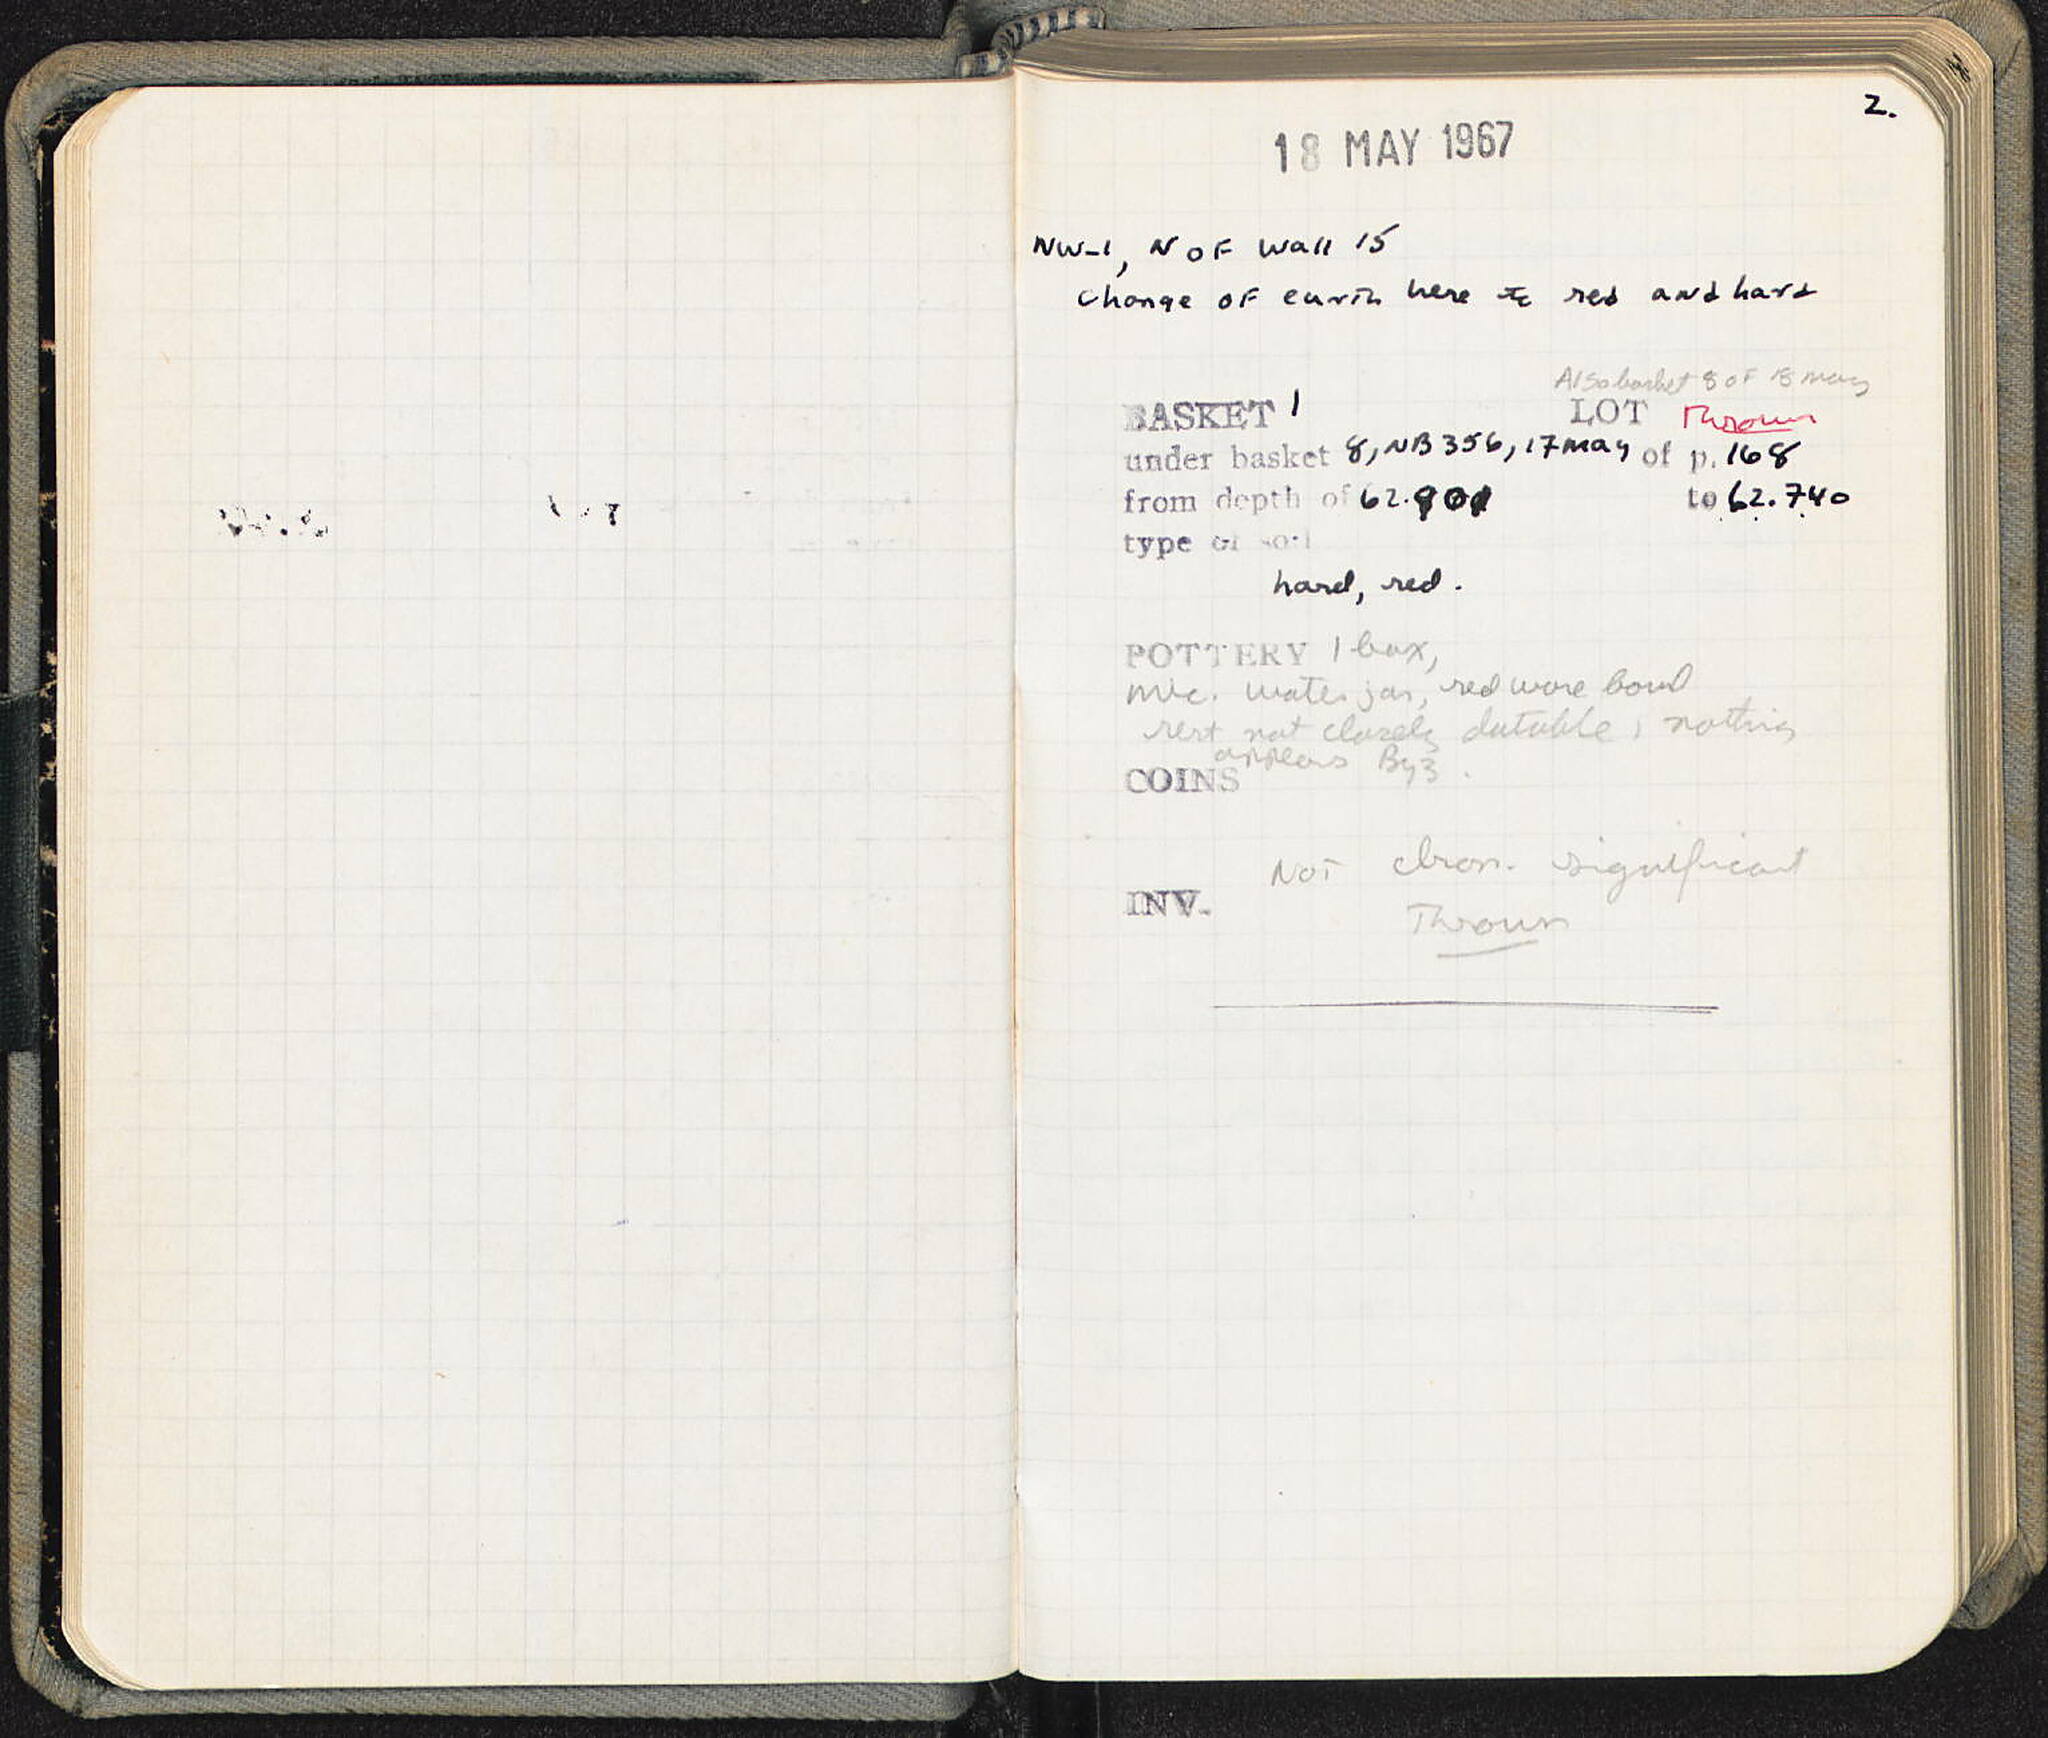 2.
18 MAY 1967
NW-1, N OF Wall 15
Change OF earth here to red and hard
Also basket 8 OF 18 May
BASKET 1 LOT Thrown
under basket 8, NB 356, 17 May of p. 168
from depth of 62.901 to 62.740
type of soil
hard, red.
POTTERY 1 box,
mic. water jar, red ware bowl
rest not closely datable, nothing
appears Byz.
COINS
NOT chron. significant
INV.
Thrown